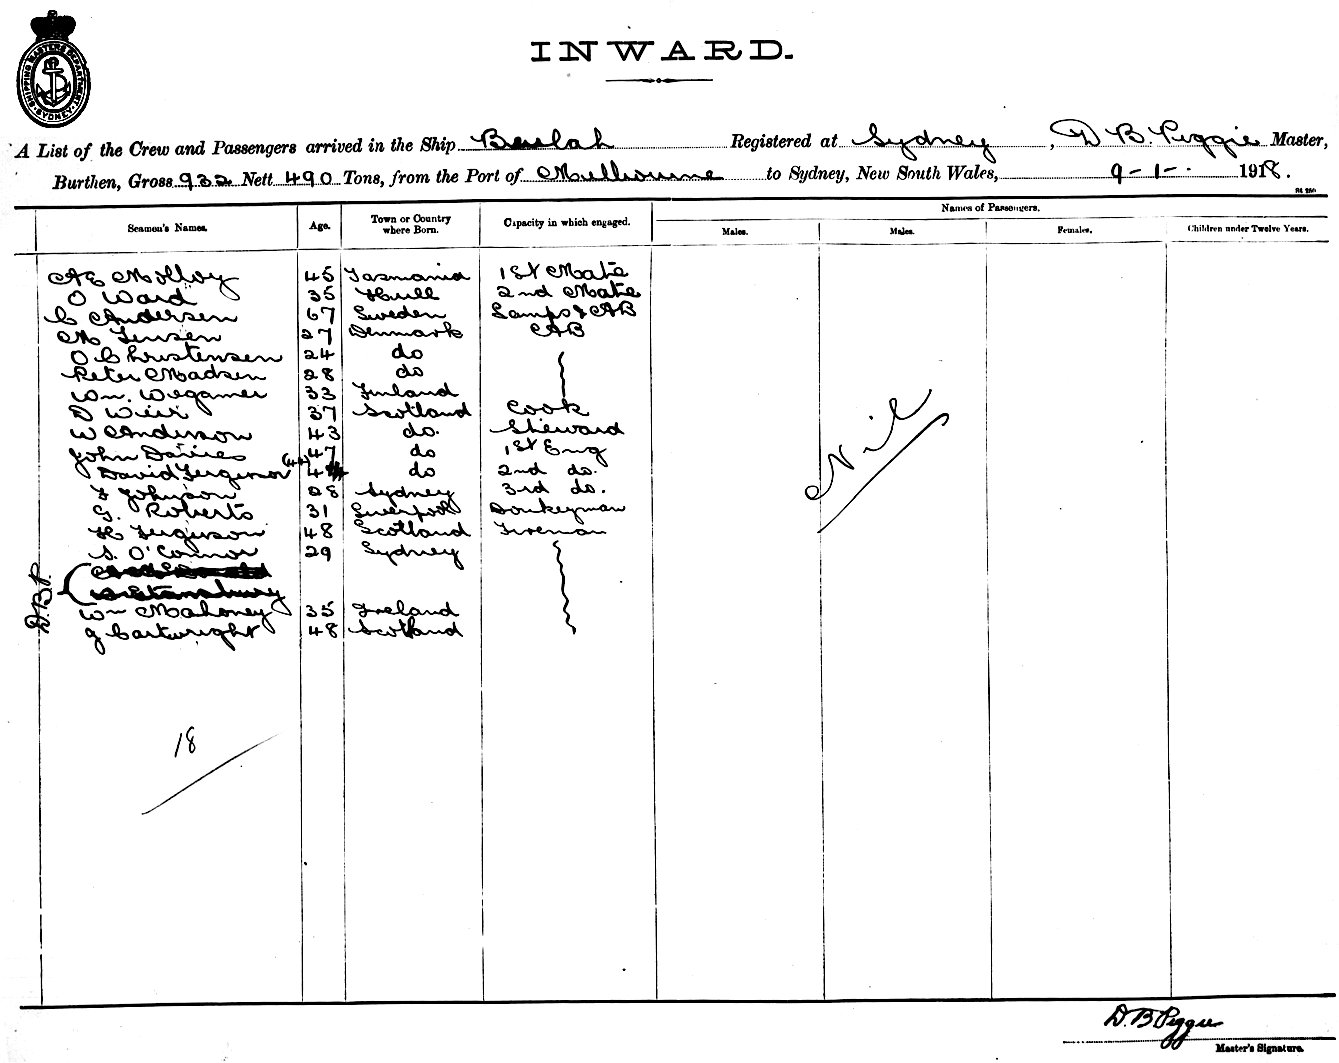 SHIPPING MASTERS DEPARTMENT · SYDNEY ·
INWARD.
A List of the Crew and Passengers arrived in the Ship Beulah Registered at Sydney, D B Peggie Master,
Burthen, Gross 932 Nett 490 Tons, from the Port of Melbourne to Sydney, New South Wales, 9-1-. 1918.
Names of Passengers.
Seamen's Names. Age. Town or Country where Born. Capacity in which engaged. Males. Males. Females. Children under Twelve Years.
A E Molloy 45 Tasmania 1st Mate
O Ward 35 Hull 2nd Mate
C Andersen 67 Sweden Lamps & AB
M Jensen 27 Denmark AB
O Christensen 24 do
Peter Madsen 28 do
Wm. Wegamer 33 Finland
D Weir 37 Scotland Cook
W Anderson 43 do. Steward
John Davies 47 do 1st Eng
David Ferguson (44) do 2nd do.
J Johnson 28 Sydney 3rd do.
G. Roberts 31 Liverpool Donkeyman
H Ferguson 48 Scotland Fireman
S. O'Connor 29 Sydney
D.B.P.
Stansbury
Wm Mahoney 35 Ireland
J Cartwright 48 Scotland
Nil
18
D.B Peggie
Master's Signature.